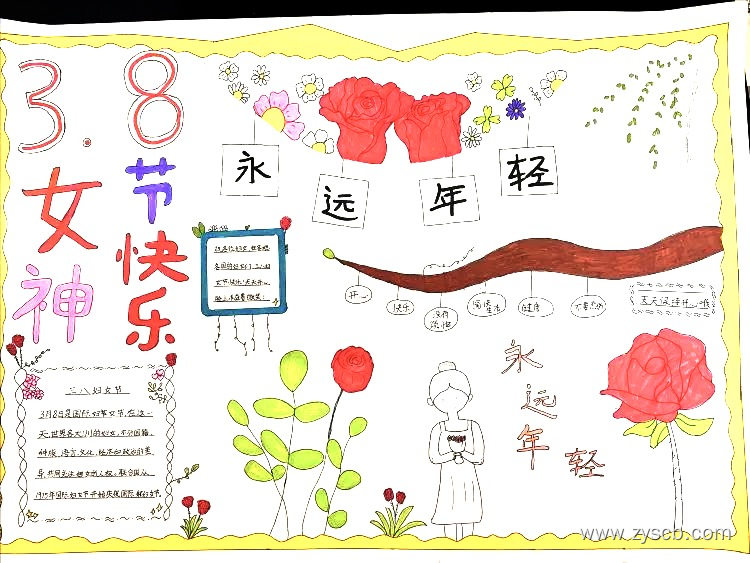 3.8
女神
节快乐
永远年轻
开心
快乐
没有烦恼
健康
天天保持开心哦
永远年轻
三八妇女节
3月8日是国际妇女节,在这一
天,世界各大洲的妇女,不分国籍、
种族、语言、文化、经济和政治的差
异,共同关注妇女的人权。联合国从
1975年国际妇女节开始庆祝国际妇女节
www.zyscb.com